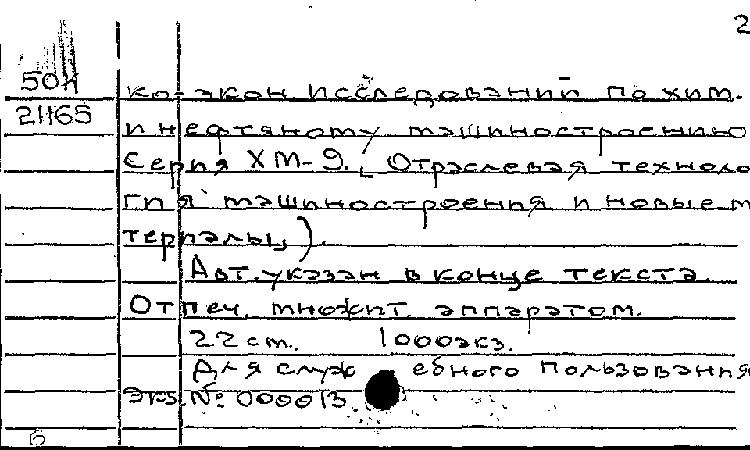 2
50И
21165
ко-экон исследований по хим.
и нефтяному машиностроению
Серия ХМ-9. (Отраслевая техноло
гия машиностроения и новые м
териалы).
Авт. указан в конце текста.
Отпеч. множит. аппаратом.
22 ст. 1000экз.
Для служебного пользования
Экз. № 000013
6